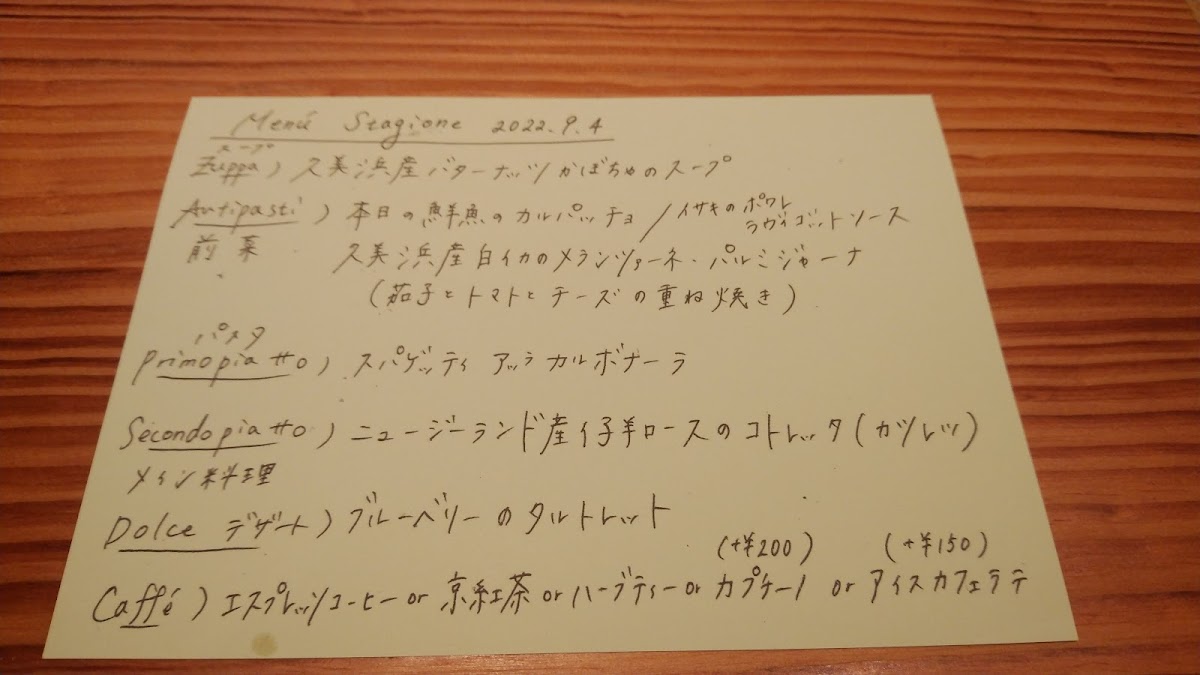 Menú Stagione 2022.9.4
スープ
Zuppa) 久美浜産バターナッツかぼちゃのスープ
Antipasti) 本日の鮮魚のカルパッチョ/イサキのポワレ
ラヴィゴットソース
前菜 久美浜産白イカのメランツァーネ・パルミジャーナ
(茄子とトマトとチーズの重ね焼き)
パスタ
Primopiatto) スパゲッティ アッラ カルボナーラ
Secondopiatto) ニュージーランド産仔羊ロースのコトレッタ(カツレツ)
メイン料理
Dolce デザート) ブルーベリーのタルトレット
(+¥200) (+¥150)
Caffé) エスプレッソコーヒー or 京紅茶 or ハーブティー or カプチーノ or アイスカフェラテ